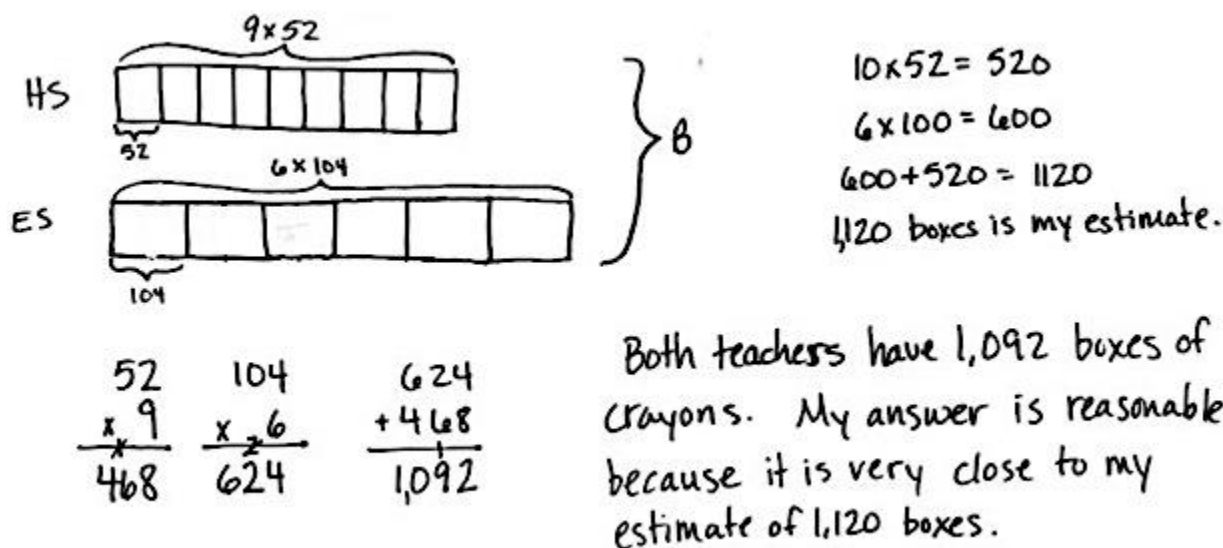 9 x 52
HS
52
B
6 x 104
ES
104
10 x 52 = 520
6 x 100 = 600
600 + 520 = 1120
1,120 boxes is my estimate.
52
x 9
1
468
104
x 6
2
624
624
+ 468
1
1,092
Both teachers have 1,092 boxes of
crayons. My answer is reasonable
because it is very close to my
estimate of 1,120 boxes.